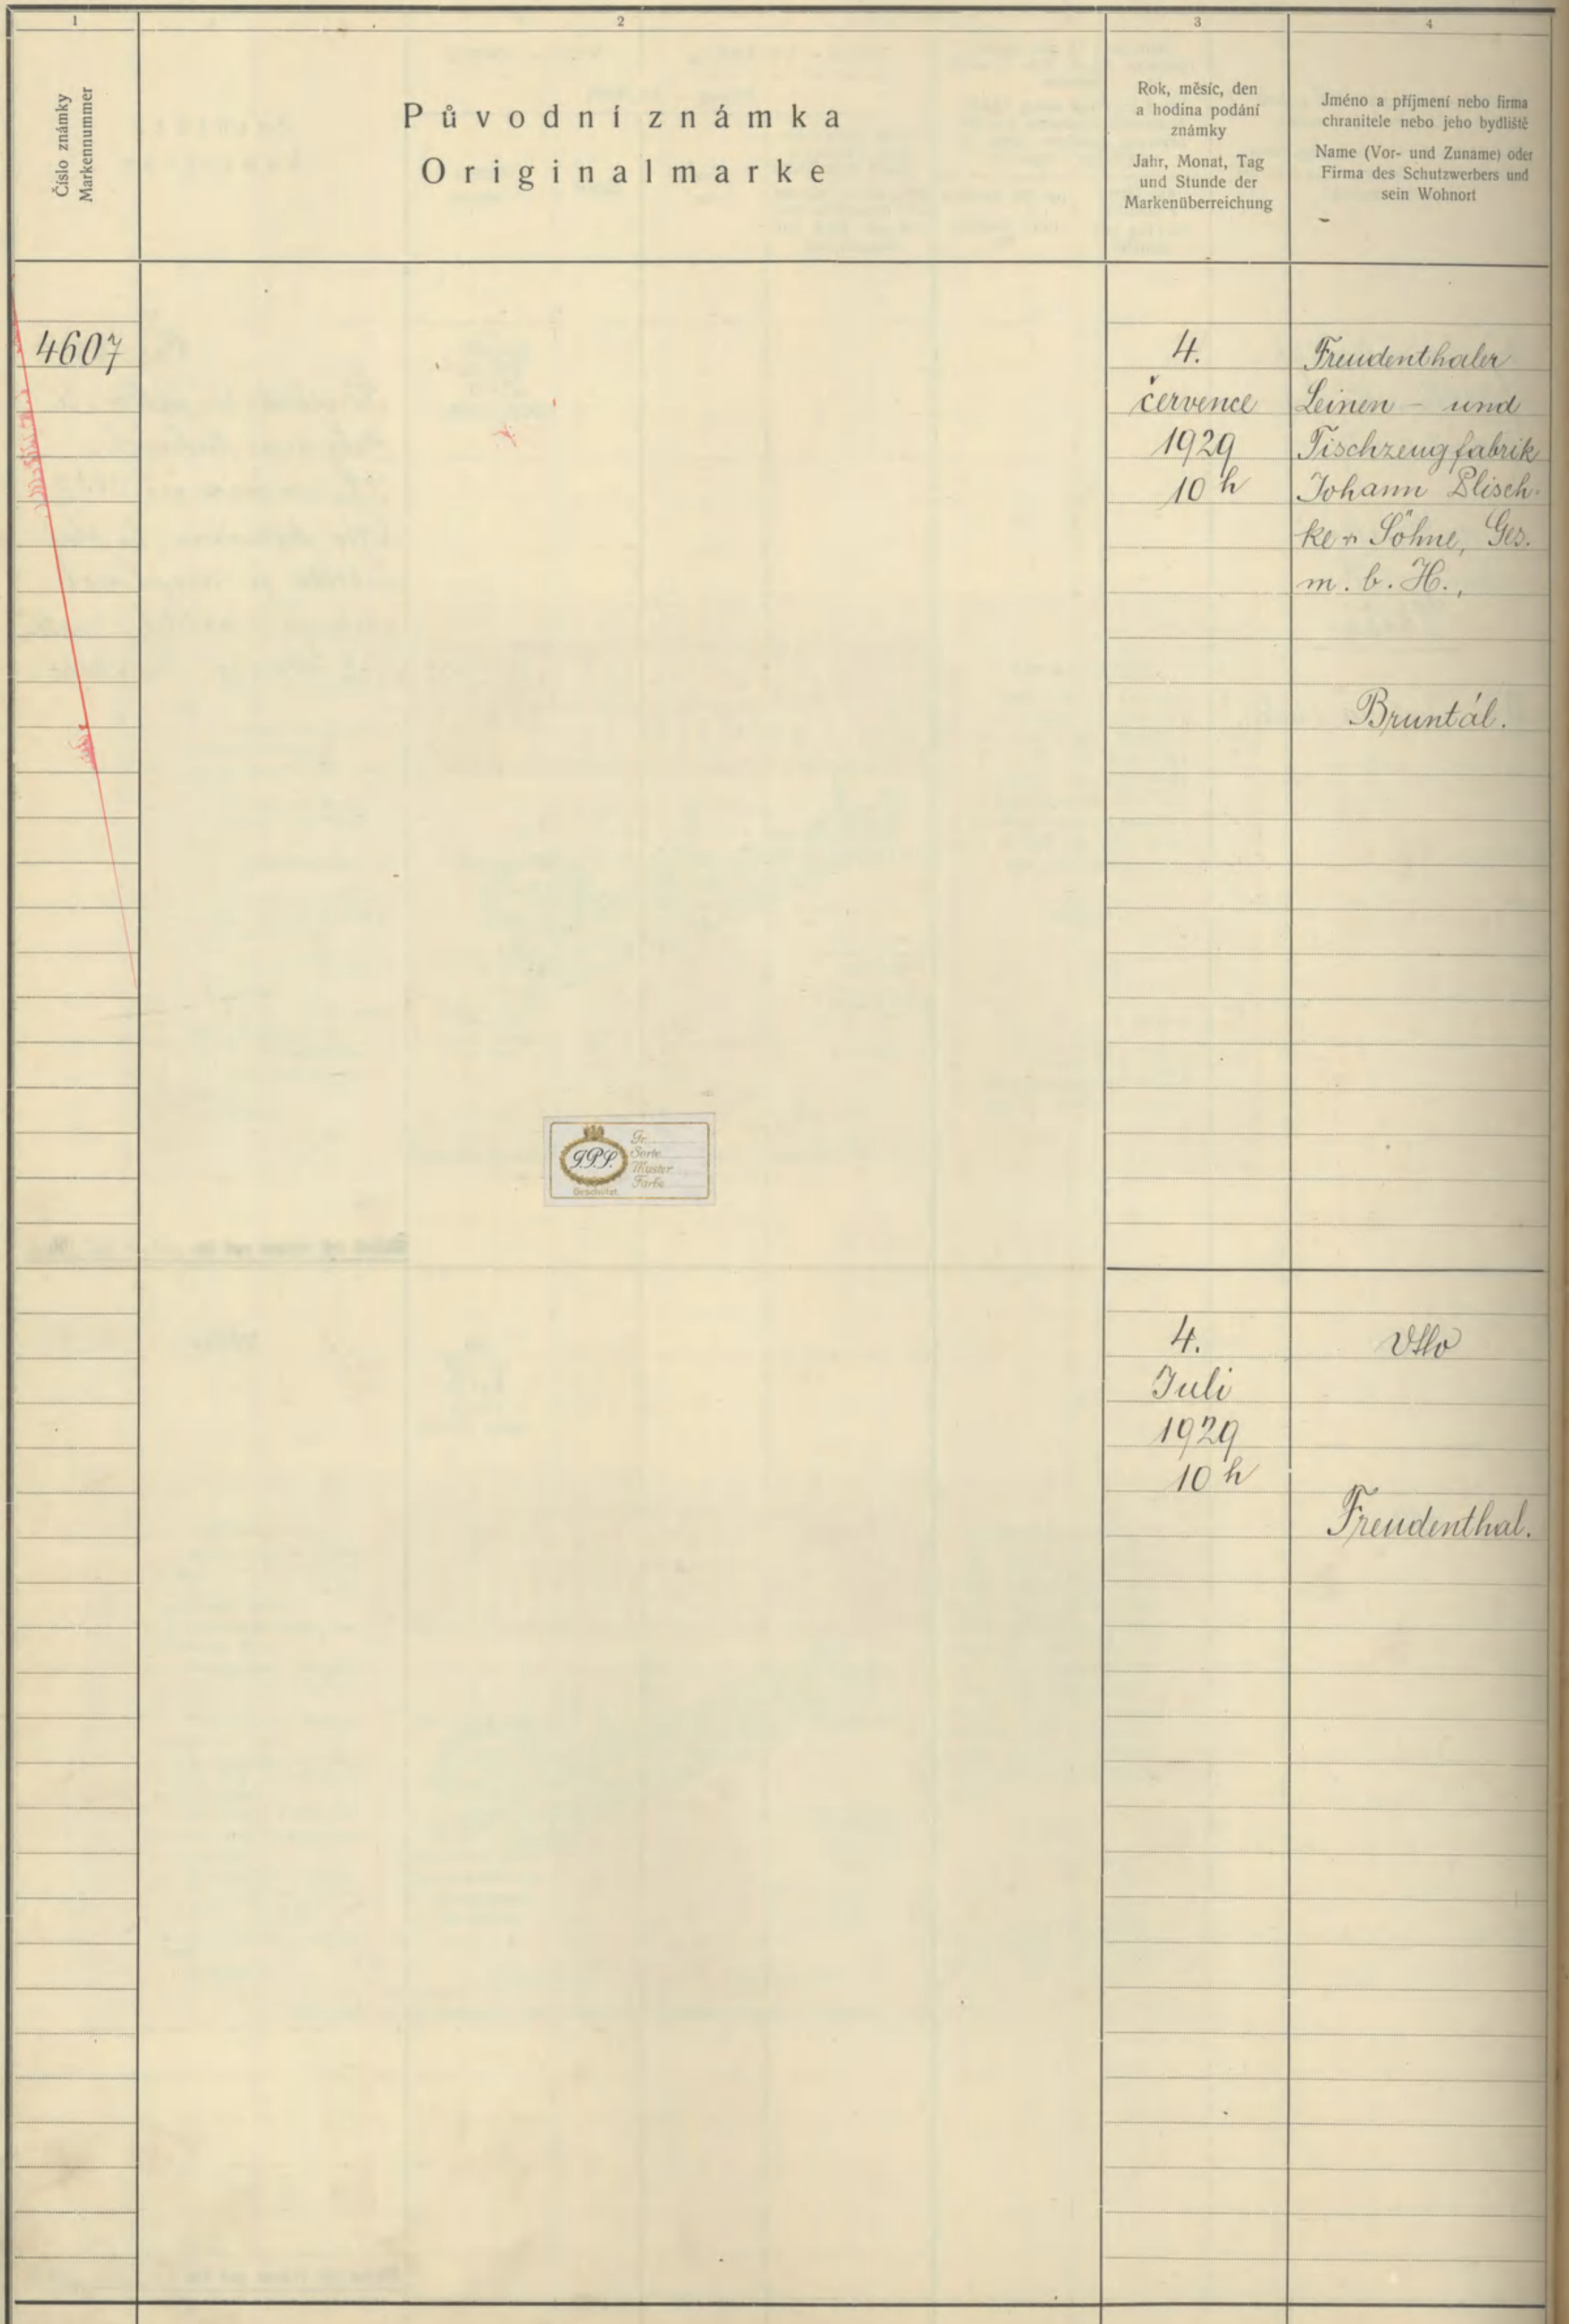 1
2
3
4
Číslo známky
Markennummer
Původní známka
Originalmarke
Rok, měsíc, den
a hodina podání
známky
Jahr, Monat, Tag
und Stunde der
Markenüberreichung
Jméno a příjmení nebo firma
chranitele nebo jeho bydliště
Name (Vor- und Zuname) oder
Firma des Schutzwerbers und
sein Wohnort
4607
4.
července
1929
10 h
Freudenthaler
Leinen - und
Tischzeugfabrik
Johann Plisch-
ke Söhne, Ges.
m. b. H.,
Bruntál.
Gr.
Sorte
Muster
Farbe
Geschützt.
4.
Juli
1929
10 h
Freudenthal.